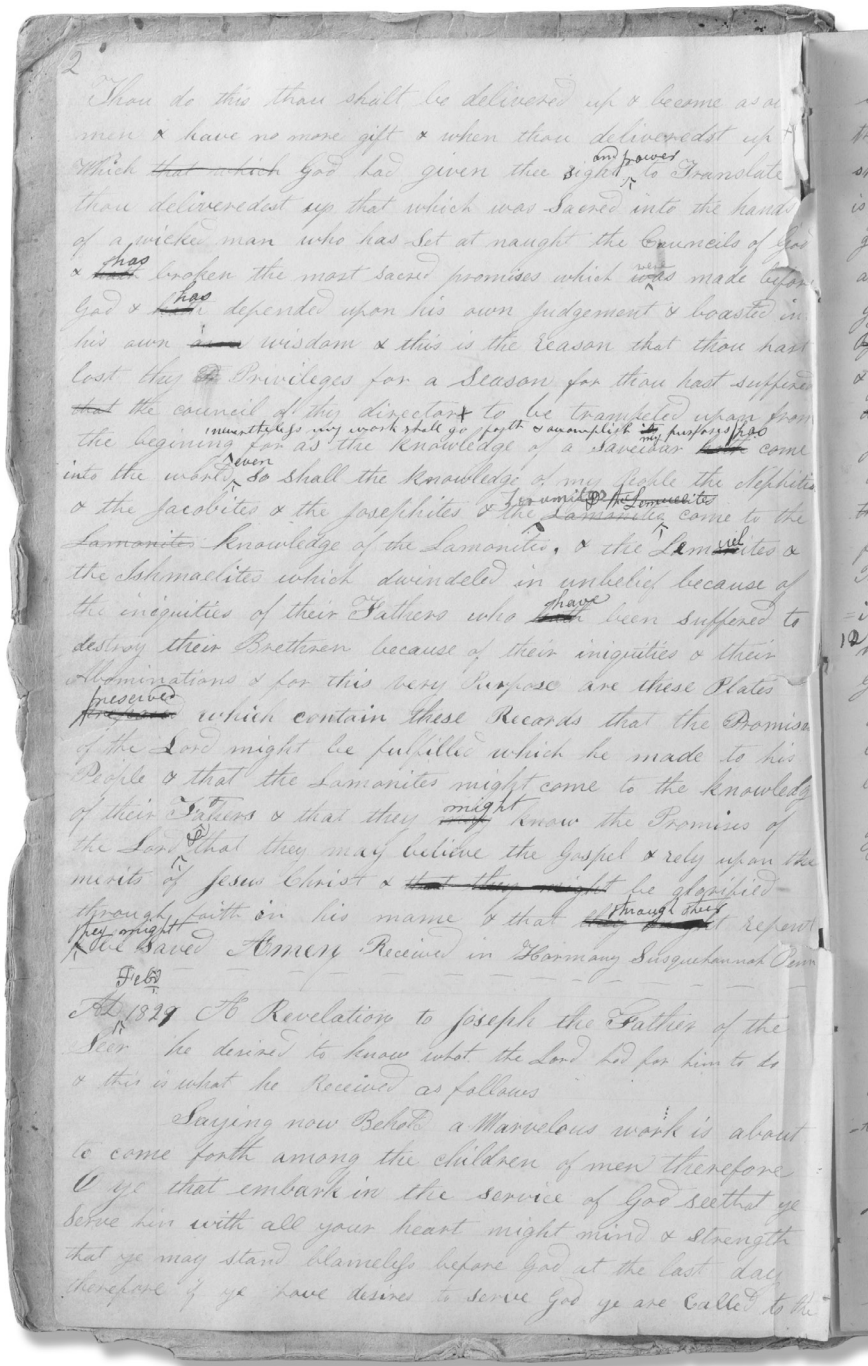 2
Thou do this thou shalt be delivered up & become as ot
men & have no more gift & when thou deliveredst up t
Which that which God had given thee sight and power to Translate
thou deliveredest up that which was Sacred into the hands
of a wicked man who has Set at naught the Councils of God
& hath has broken the most sacred promises which was were made before
God & hath has depended upon his own Judgement & boasted in
his own wisdom & this is the reason that thou hast
lost thy Privileges for a Season for thou hast suffered
that the council of thy directors to be trampeled upon from
the begining nevertheless my work shall go forth & accomplish its my purposes for as the knowledge of a saveiour hath has come
into the world even so shall the knowledge of my people the Nephites
& the Jacobites & the Josephites & the Lamanites Zoramites & the Lemuelites come to the
Lamanites knowledge of the Lamanites, & the Lemuelites &
the Ishmaelites which dwindeled in unbelief because of
the iniquities of their Fathers who hath have been suffered to
destroy their Brethren because of their iniquities & their
Abominations & for this very Purpose are these Plates
prepared preserved which contain these Records that the Promises
of the Lord might be fulfilled which he made to his
People & that the Lamanites might come to the knowledge
of their Fathers & that they may might know the Promises of
the Lord & that they may believe the Gospel & rely upon the
merits of Jesus Christ & that they might be glorified
through faith in his name & that they might through their repent
they might be Saved Amen Received in Harmony Susquehannah Penn
Feb
AD 1829 A Revelation to Joseph the Father of the
Seer he desired to know what the Lord had for him to do
& this is what he Received as follows
Saying now Behold a Marvelous work is about
to come forth among the children of men therefore
O ye that embark in the service of God see that ye
serve him with all your heart might mind & strength
that ye may stand blameless before God at the last day
therefore if ye have desires to serve God ye are Called to the
12